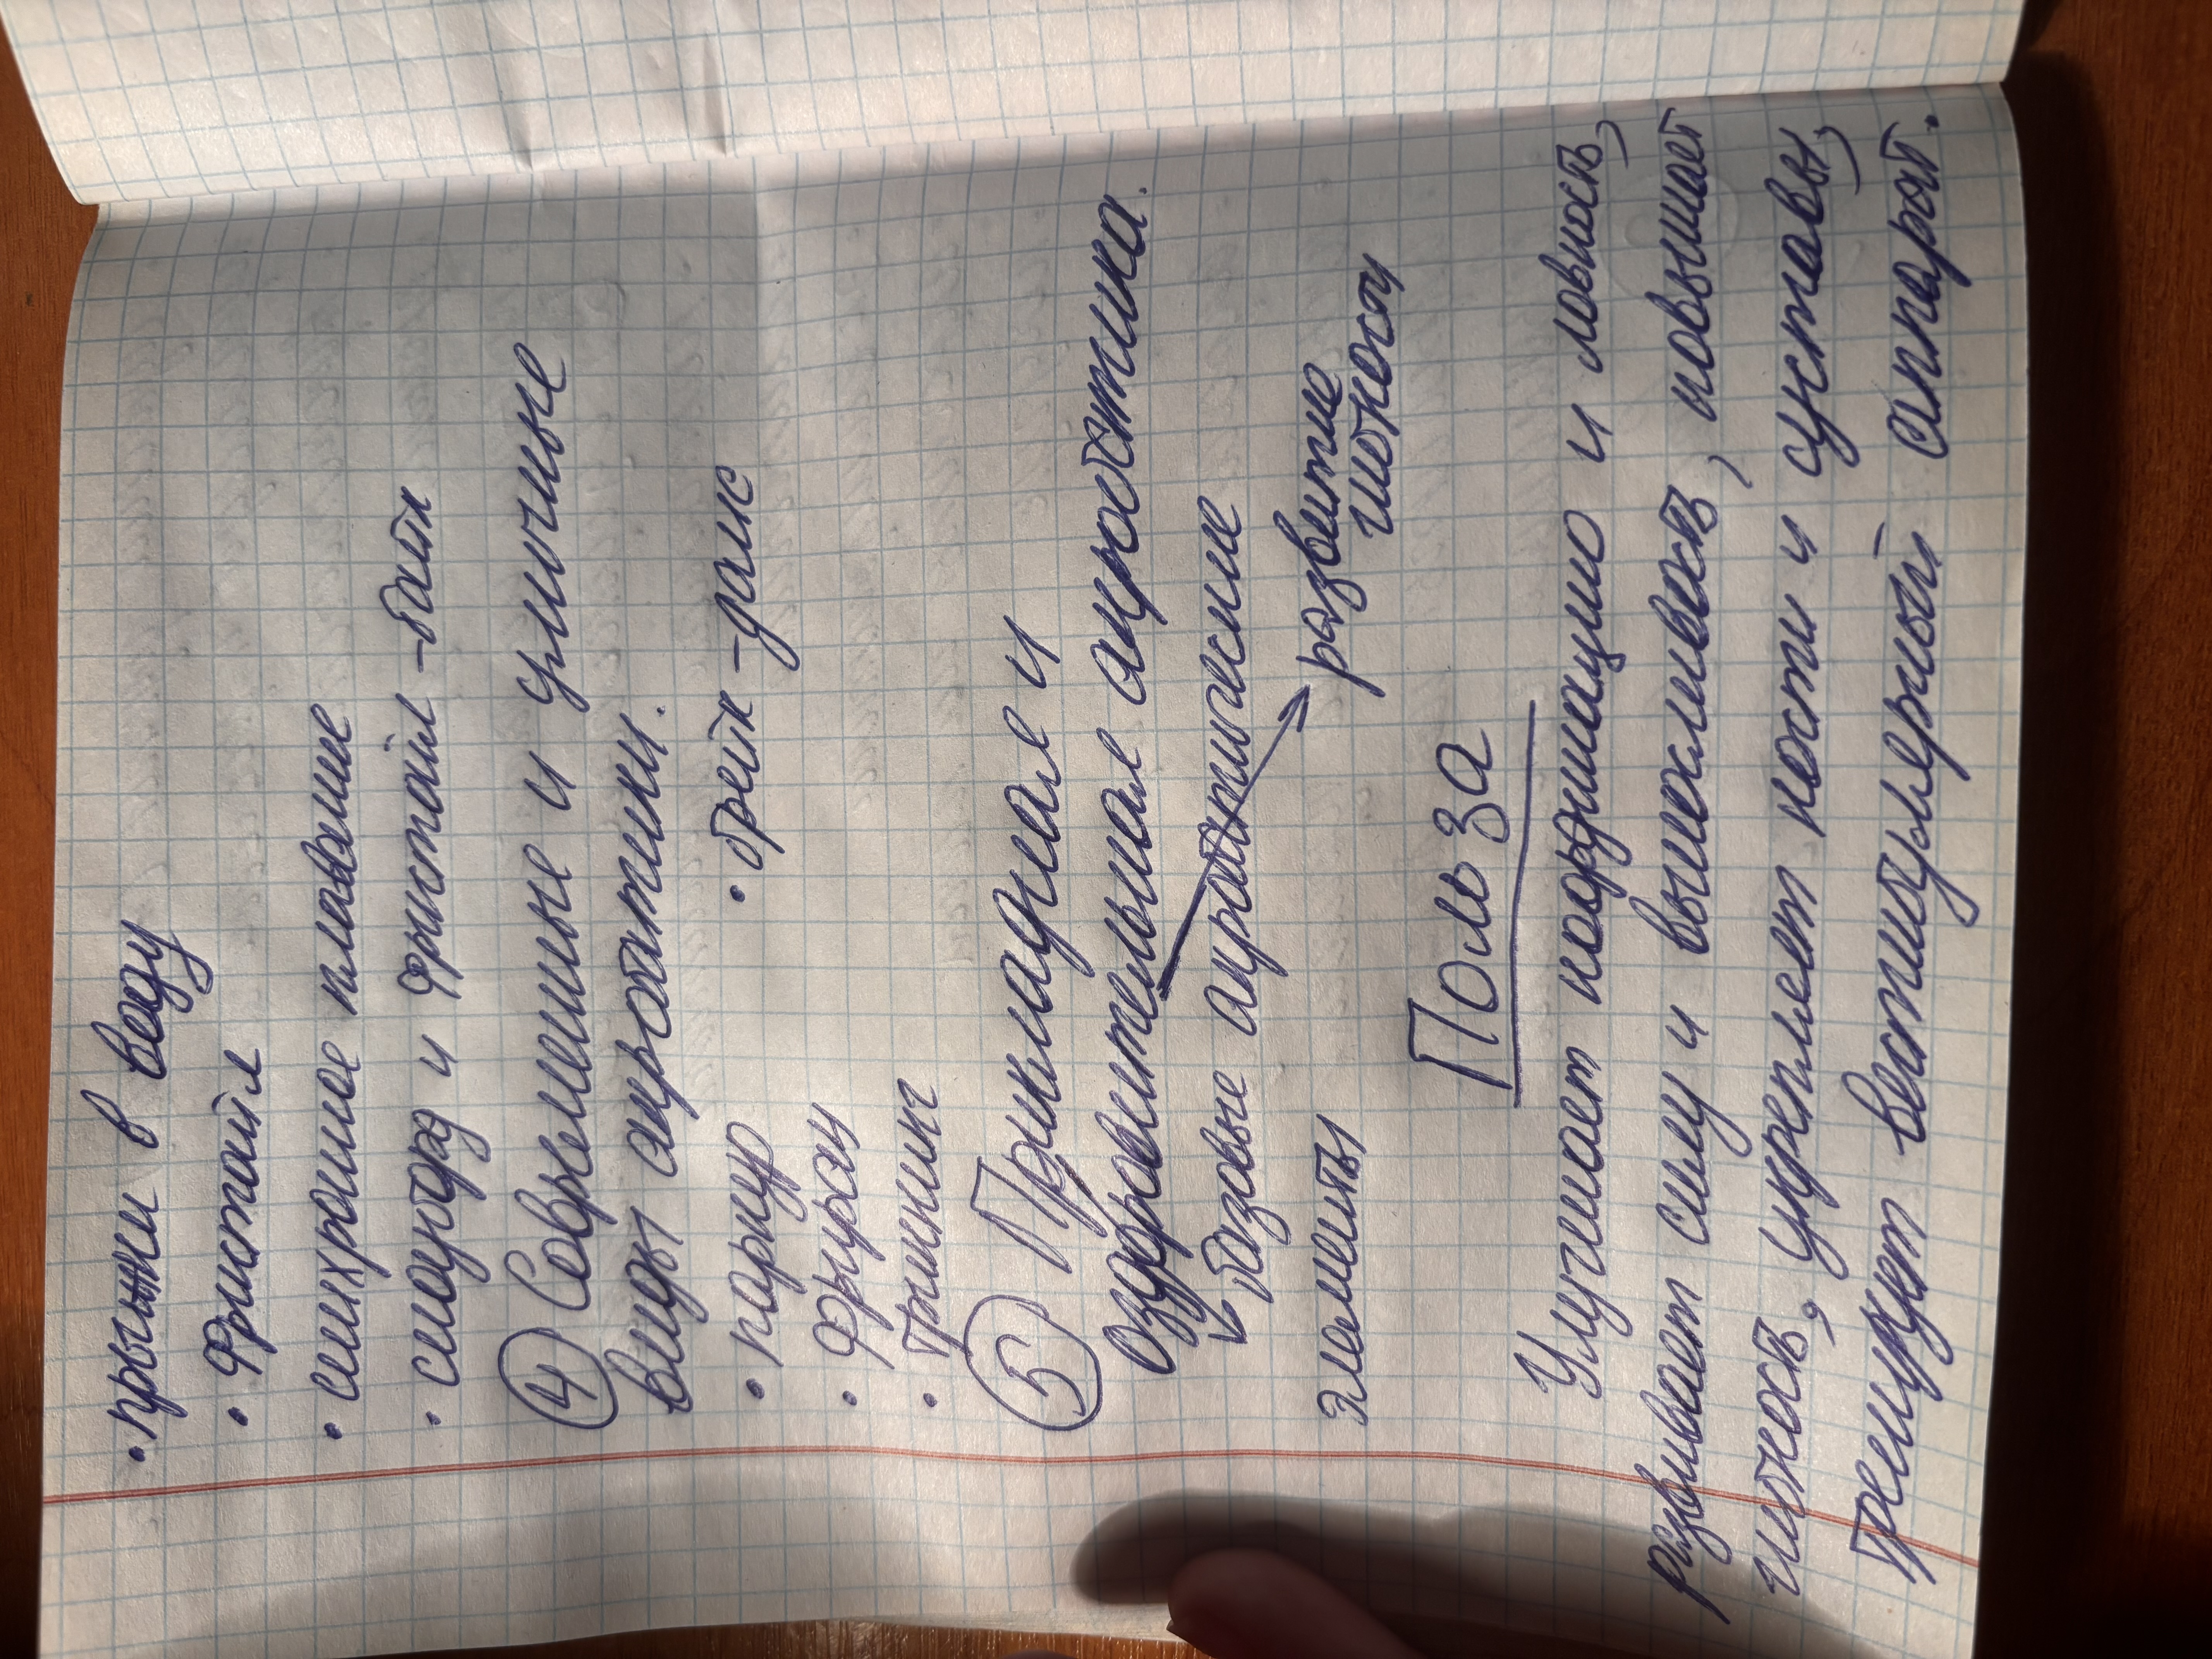 • прыжки в воду
• Фристайл
• синхронное плавание
• сноуборд и фристайл -байк
④ Современные и уличные
виды акробатики.
• паркур • брейк -данс
• Фриран
• Трикинг
⑤ Прикладная и
оздоровительная акробатика.
базовые акробатические
элементы развитие
гибкости
Польза
Улучшает координацию и ловкость,
развивает силу и выносливость, повышает
гибкость, укрепляет кости и суставы,
тренирует вестибулярный аппарат.